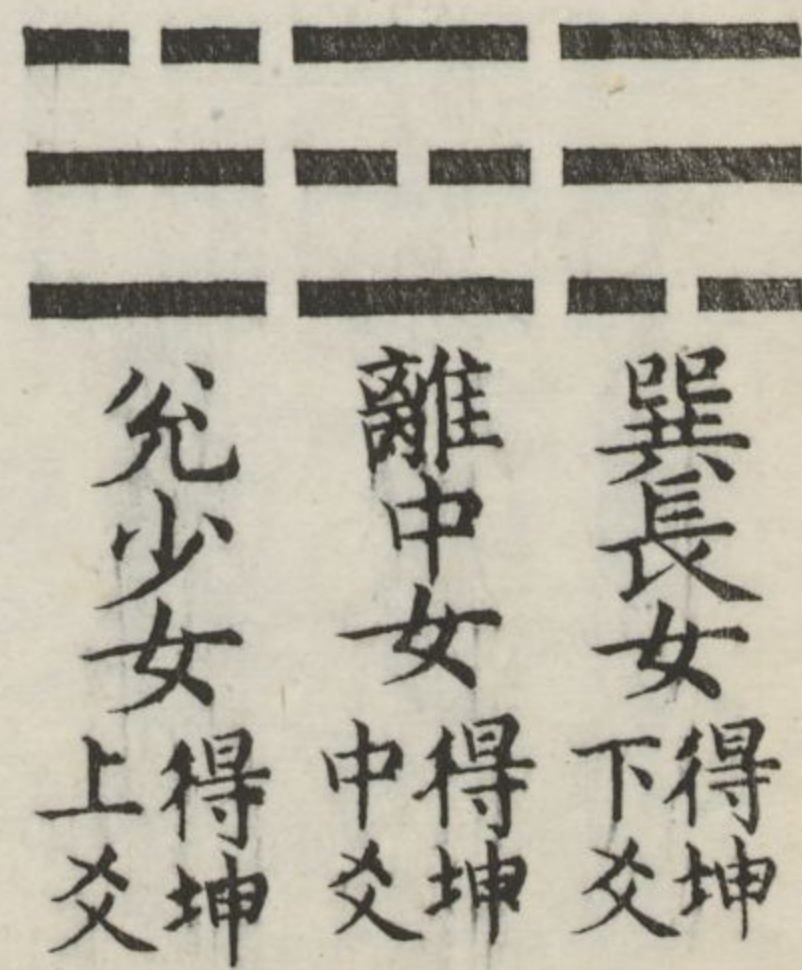 巽長女得坤下爻
離中女得坤中爻
兌少女得坤上爻